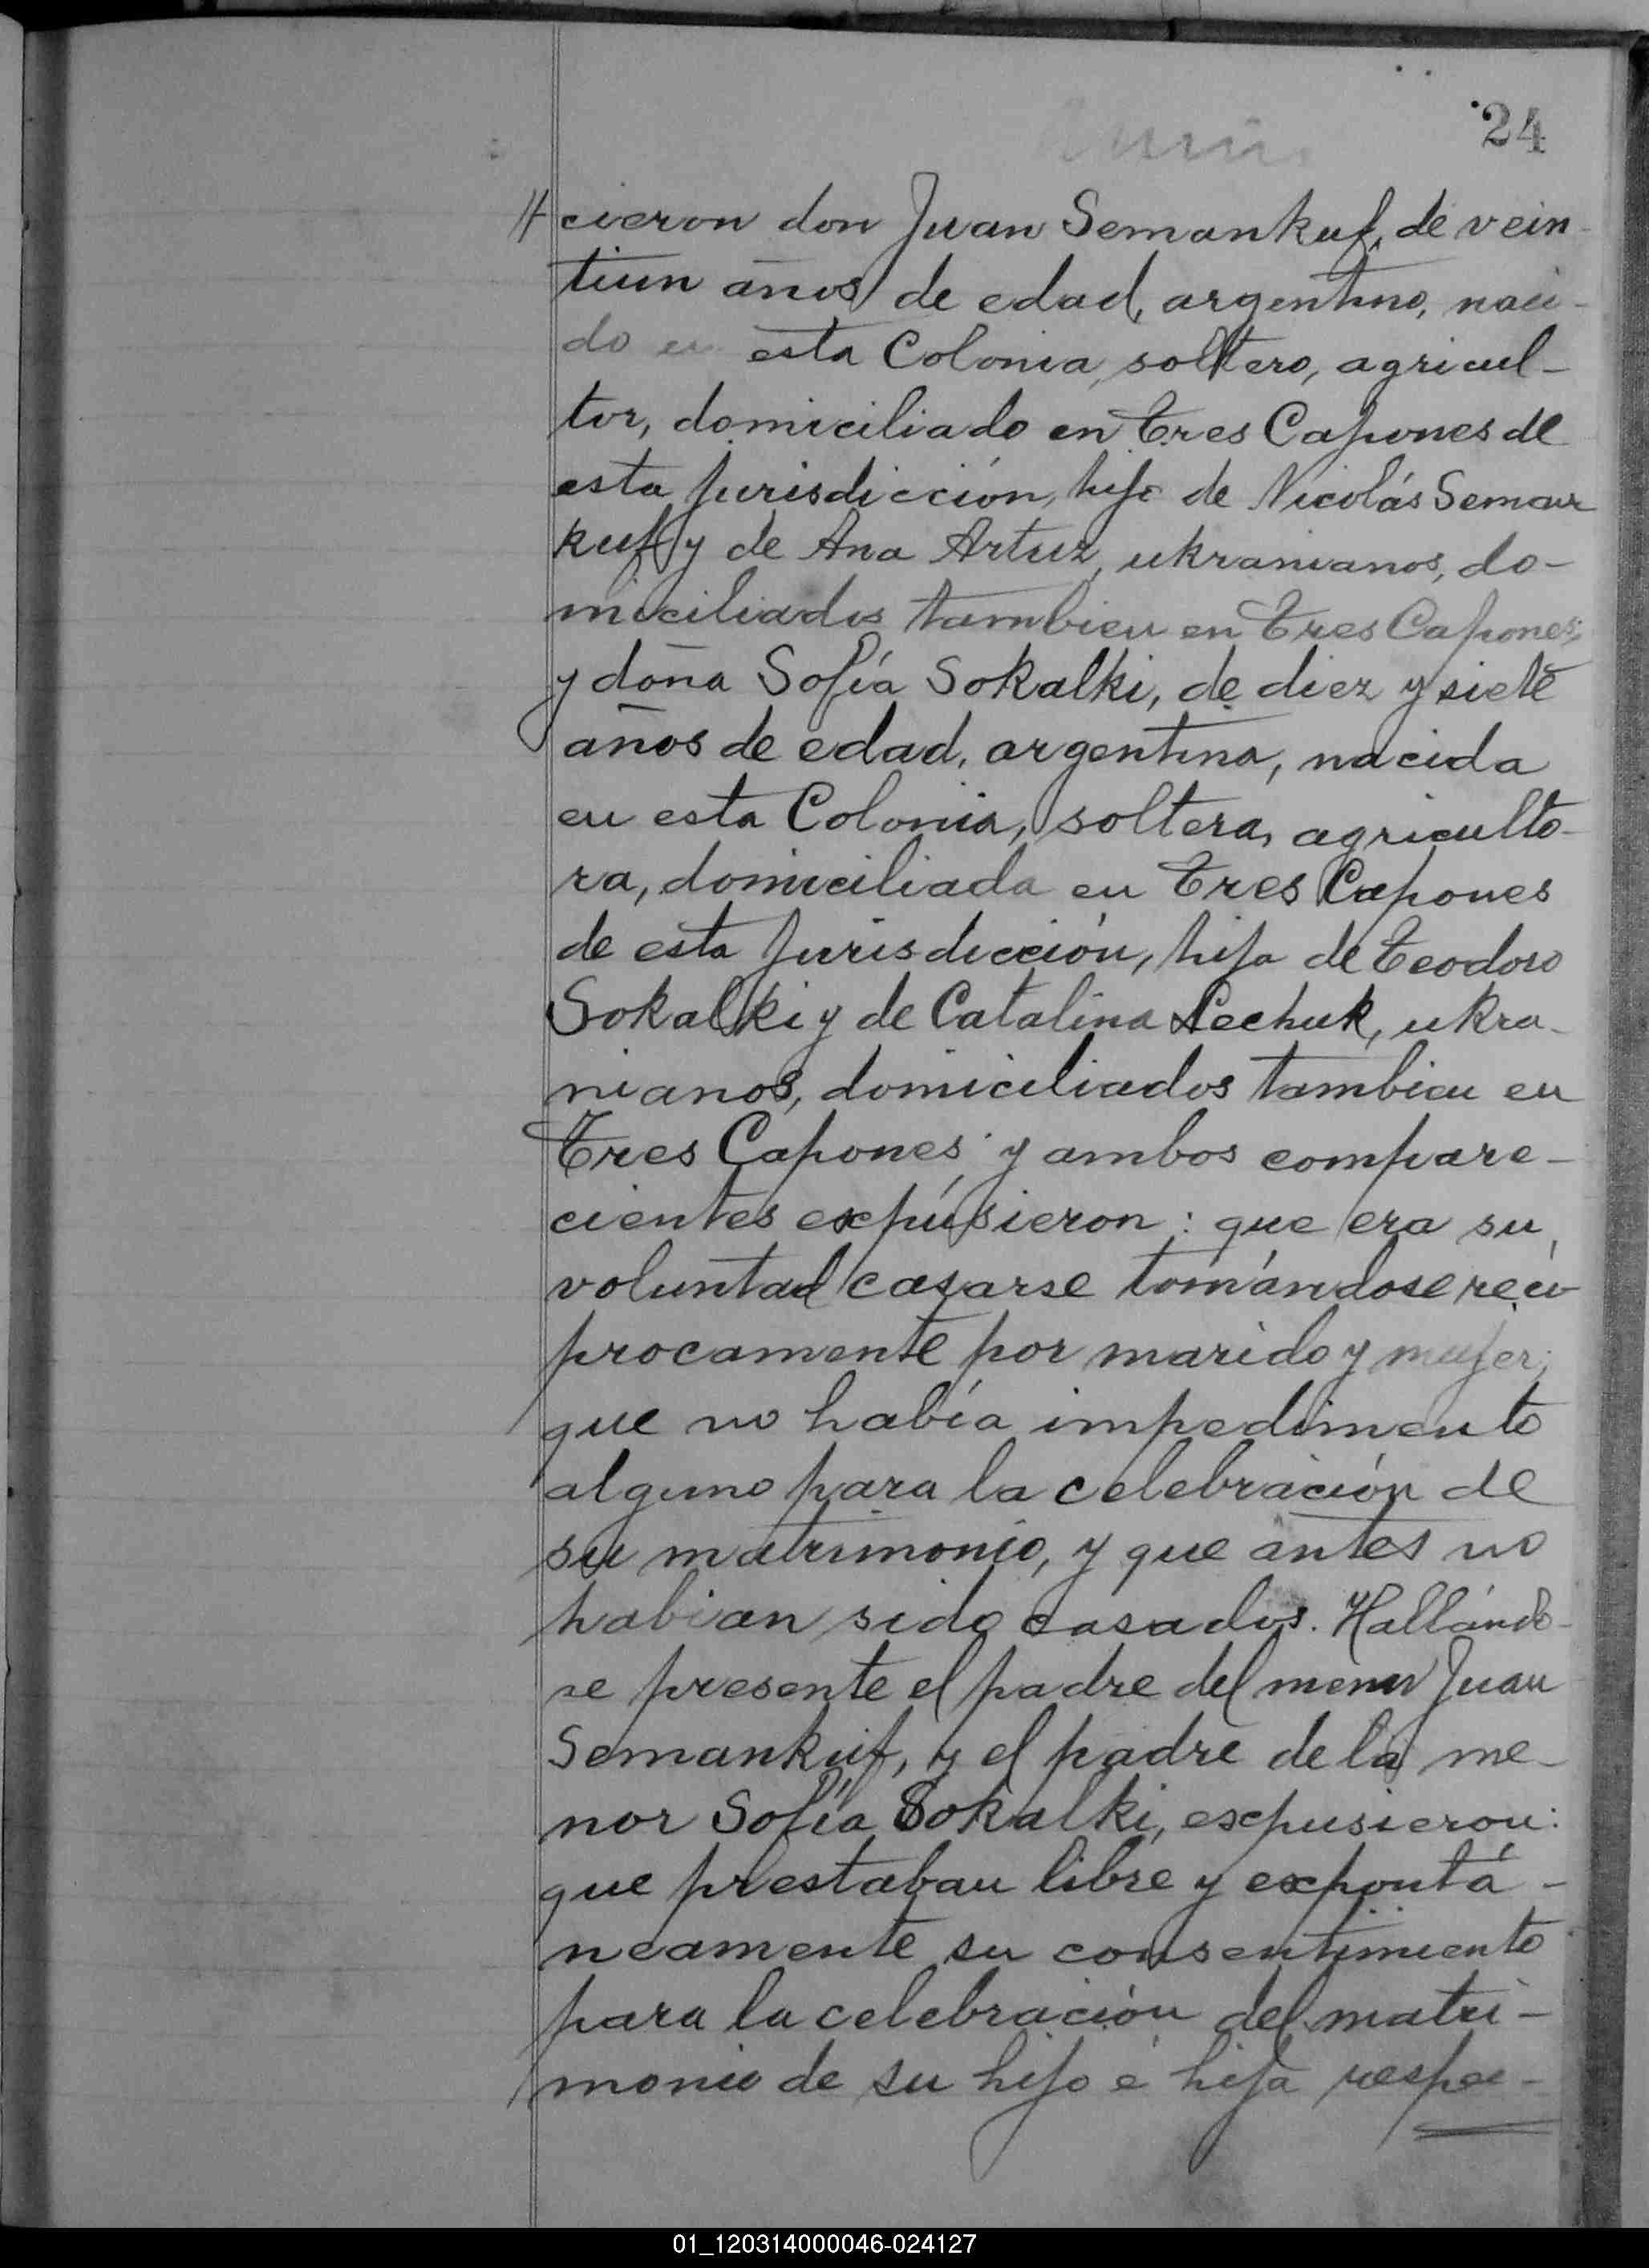 24
cieron don Juan Semankuf, de vein-
tiun años de edad, argentino, naci-
do en esta Colonia, soltero, agricul-
tor, domiciliado en Tres Capones de
esta Jurisdicción, hijo de Nicolás Seman
kuf y de Ana Artuz, ukranianos, do-
miciliados tambien en Tres Capones;
y doña Sofía Sokalki, de diez y siete
años de edad, argentina, nacida
en esta Colonia, soltera, agriculto-
ra, domiciliada en Tres Capones
de esta Jurisdicción, hija de Teodoro
Sokalki y de Catalina Lechuk, ukra-
nianos, domiciliados tambien en
Tres Capones; y ambos compare-
cientes expusieron: que era su
voluntad casarse tomándose reci-
procamente por marido y mujer;
que no había impedimento
alguno para la celebración de
su matrimonio, y que antes no
habian sido casados. Hallándo-
se presente el padre del menor Juan
Semankuf, y el padre de la me-
nor Sofía Sokalki, expusieron:
que prestaban libre y expontá-
neamente su consentimiento
para la celebración del matri-
monio de su hijo é hija respec-
01_120314000046-024127